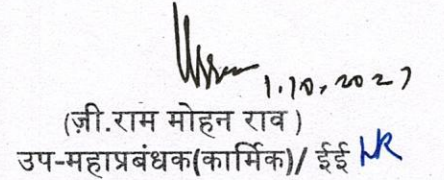 1.10.2027
(ज़ी.राम मोहन राव )
उप-महाप्रबंधक(कार्मिक)/ ईई